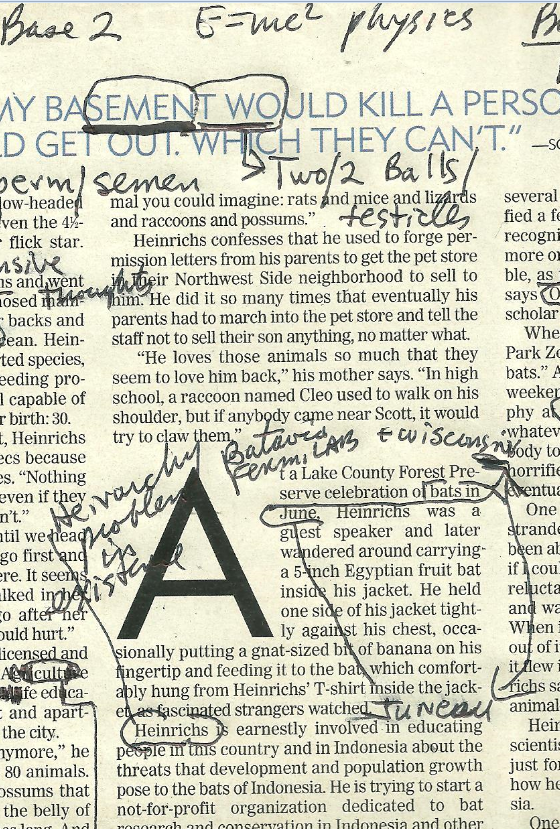 Base 2 E=mc² physics
MY BASEMENT WOULD KILL A PERSO
LD GET OUT. WHICH THEY CAN'T."
—SC
perm/semen
Two/2 Balls/
testicles
low-headed
ven the 4½-
flick star.
nsive
ns and went
thoughts
backs and
ean. Hein-
ted species,
eeding pro-
l capable of
r birth: 30.
t, Heinrichs
ecs because
es. "Nothing
even if they
n't."
ntil we head
go first and
ere. It seems
alked in her
go after her
ould hurt."
licensed and
Agriculture
life educa-
t and apart-
the city.
nymore," he
80 animals.
ossums that
the belly of
as long. And
mal you could imagine: rats and mice and lizards
and raccoons and possums."
Heinrichs confesses that he used to forge per-
mission letters from his parents to get the pet store
in their Northwest Side neighborhood to sell to
him. He did it so many times that eventually his
parents had to march into the pet store and tell the
staff not to sell their son anything, no matter what.
"He loves those animals so much that they
seem to love him back," his mother says. "In high
school, a raccoon named Cleo used to walk on his
shoulder, but if anybody came near Scott, it would
try to claw them."
Batavia
FERMILAB + wisconsin
Heirarchy
problem
in
existence
At a Lake County Forest Pre-
serve celebration of bats in
June, Heinrichs was a
guest speaker and later
wandered around carrying
a 5-inch Egyptian fruit bat
inside his jacket. He held
one side of his jacket tight-
ly against his chest, occa-
sionally putting a gnat-sized bit of banana on his
fingertip and feeding it to the bat, which comfort-
ably hung from Heinrichs' T-shirt inside the jack-
et as fascinated strangers watched.
Juneau
Heinrichs is earnestly involved in educating
people in this country and in Indonesia about the
threats that development and population growth
pose to the bats of Indonesia. He is trying to start a
not-for-profit organization dedicated to bat
research and conservation in Indonesia and other
several
fied a fe
recogni
more or
ble, as
says
scholar
Whe
Park Zo
bats." A
weeken
phy a
whatev
body to
horrifie
eventua
One
strande
been ab
if I coul
relucta
and wa
When i
out of i
it flew i
richs sa
animal
How
scienti
just for
how he
sia.
One